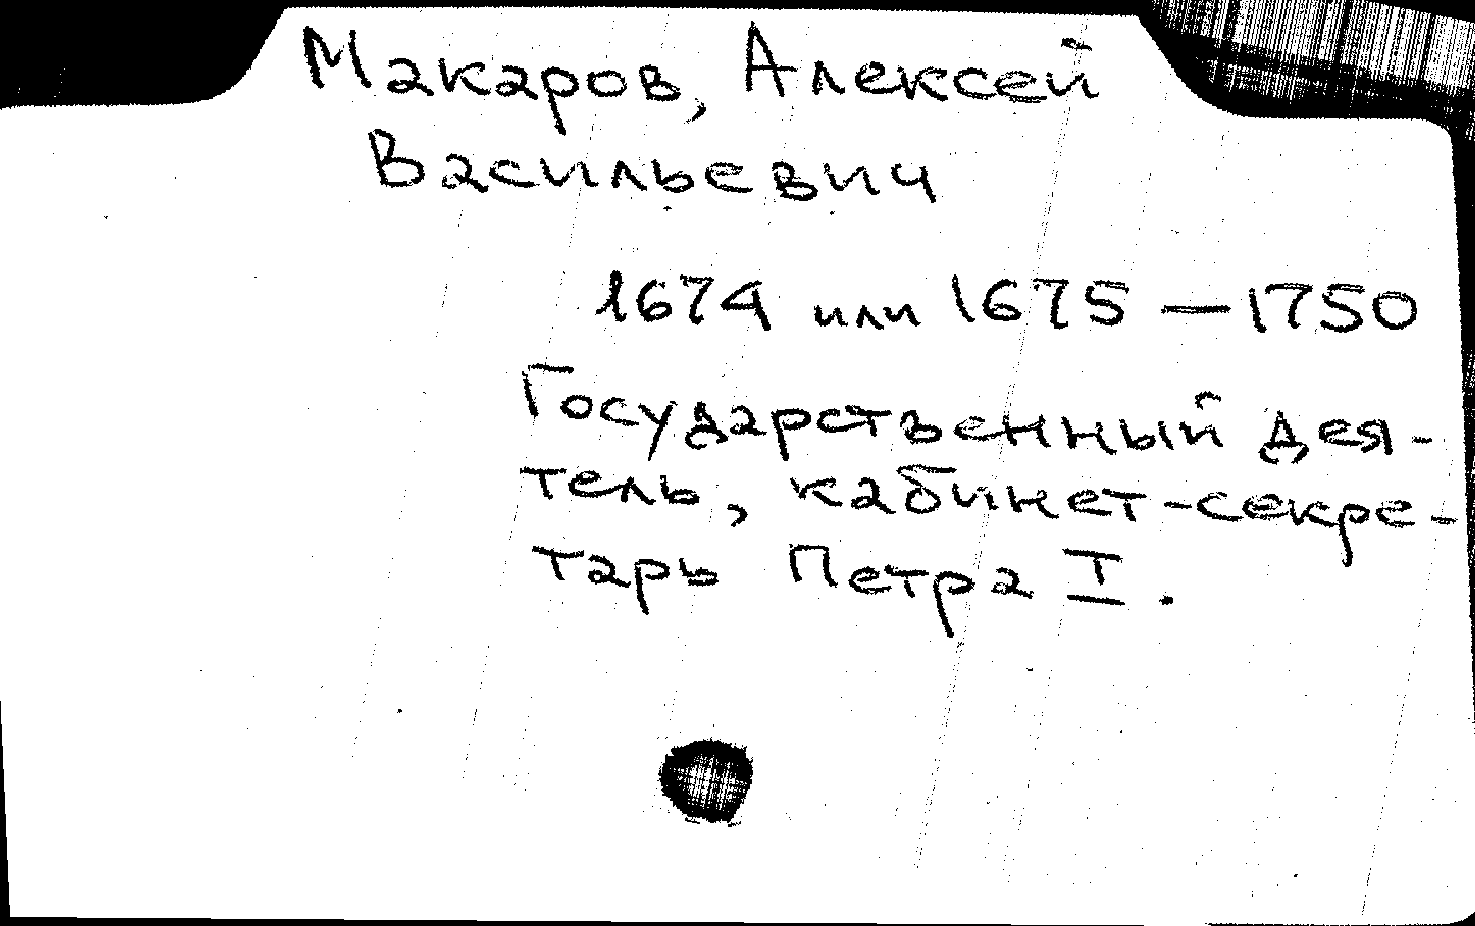 Макаров, Алексей
Васильевич
1674 или 1675 — 1750
Государственный дея-
тель, кабинет-секре-
тарь Петра I.